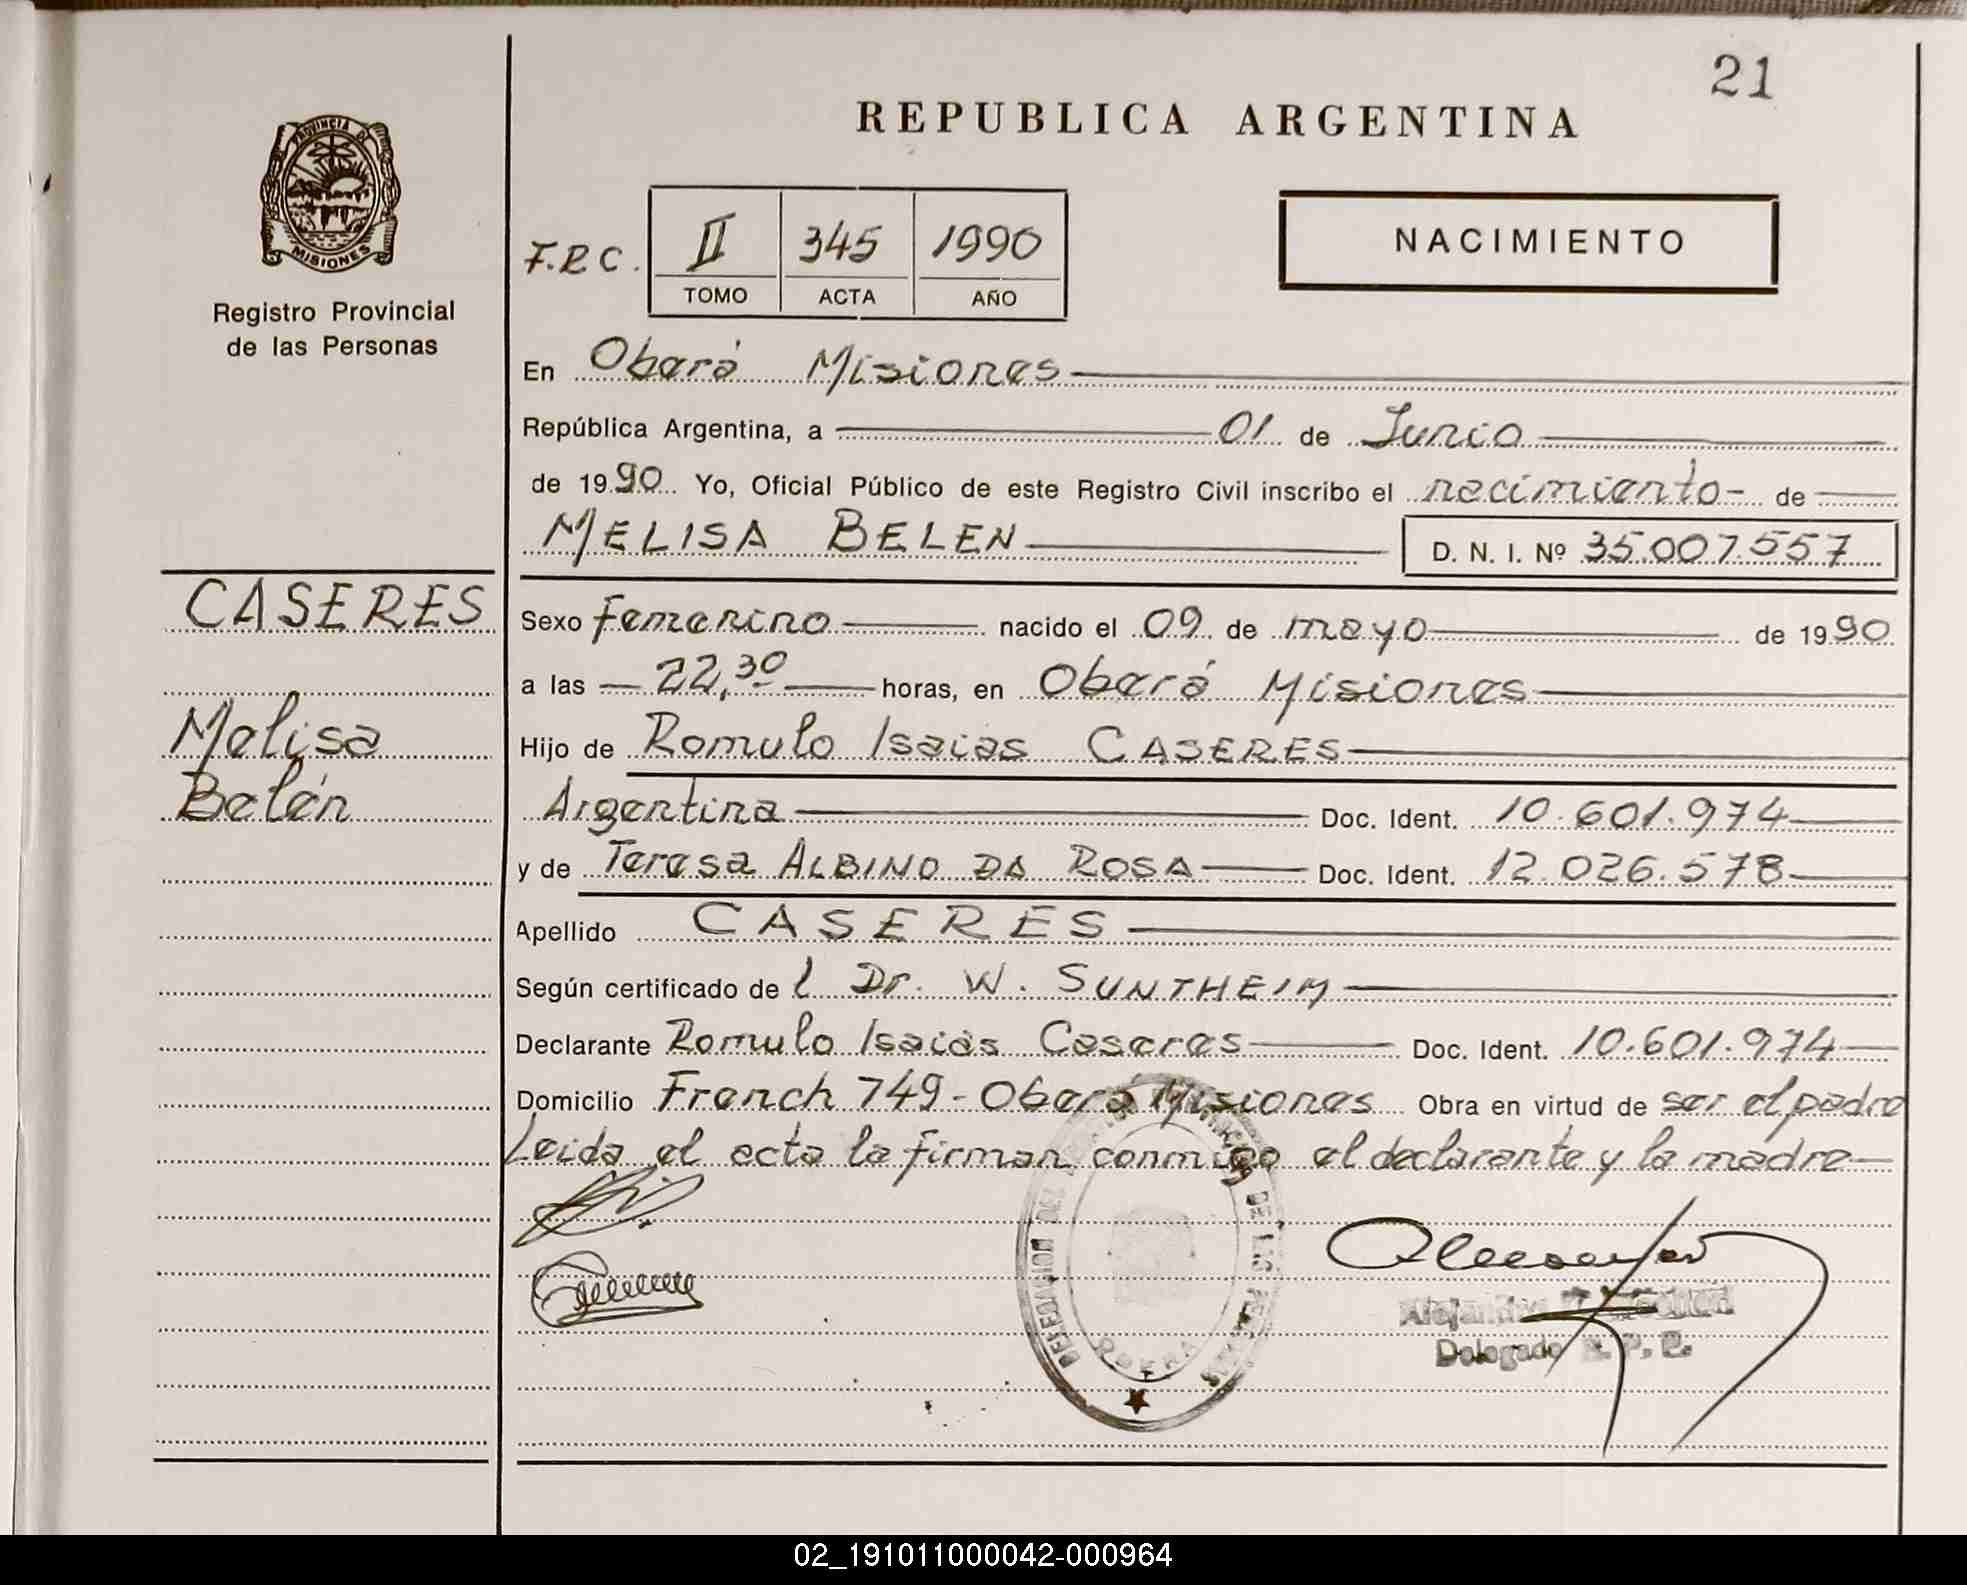 21
REPUBLICA ARGENTINA
PROVINCIA DE
MISIONES
Registro Provincial
de las Personas
F.R.C. II 345 1990
TOMO ACTA AÑO
NACIMIENTO
En Oberá Misiones
República Argentina, a 01 de Junio
de 1990 Yo, Oficial Público de este Registro Civil inscribo el nacimiento de
MELISA BELEN D. N. I. Nº 35.007.557
CASERES
Melisa
Belén
Sexo femenino nacido el 09 de mayo de 1990
a las 22,30 horas, en Oberá Misiones
Hijo de Romulo Isaias CASERES
Argentina Doc. Ident. 10.601.974
y de Teresa ALBINO DA ROSA Doc. Ident. 12.026.578
Apellido CASERES
Según certificado del Dr. W. SUNTHEIM
Declarante Romulo Isaiás Caseres Doc. Ident. 10.601.974
Domicilio French 749 - Oberá Misiones Obra en virtud de ser el padre
Leida el acta la firman conmigo el declarante y la madre
DELEGACION DEL DE LAS PERSONAS
OBERA
Delegado R. P. P.
02_191011000042-000964